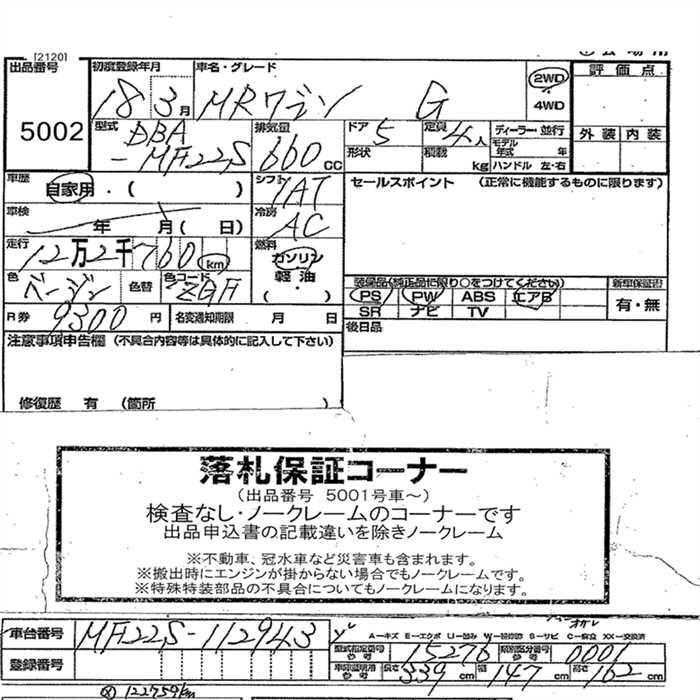 [2120]
出品番号 5002
初度登録年月 18 3月
車名・グレード MRワゴン G
2WD 4WD
評価点
外装 内装
型式 DBA-MF22S
排気量 660 CC
ドア 5 形状
定員 4人 積載 kg
ディーラー・並行
モデル年式 年
ハンドル 左・右
車歴 自家用・( )
シフト 7AT
セールスポイント (正常に機能するものに限ります)
車検 年 月( 日)
冷房 AC
走行 12万2千760 km
燃料 ガソリン 軽油 ( ・ )
色 ベージュ 色替
色コード ZGH
装備品(純正品に限り○をつけてください)
PS PW ABS エアB
SR ナビ TV
新車保証書 有・無
R券 9300 円
名変通知期限 月 日
後日品
注意事項申告欄 (不具合内容等は具体的に記入して下さい)
修復歴 有 (箇所 )
落札保証コーナー
(出品番号 5001号車~)
検査なし・ノークレームのコーナーです
出品申込書の記載違いを除きノークレーム
※不動車、冠水車など災害車も含まれます。
※搬出時にエンジンが掛からない場合でもノークレームです。
※特殊特装部品の不具合についてもノークレームになります。
車台番号 MF22S-112943
A-キズ E-エクボ U-凹み W-補修跡 S-サビ C-腐食 XX-交換済
登録番号
型式指定番号 参考 15276
類別区分番号 参考 0001
車庫証明用 参考 長さ 339 cm 幅 147 cm 高さ 162 cm
122759km